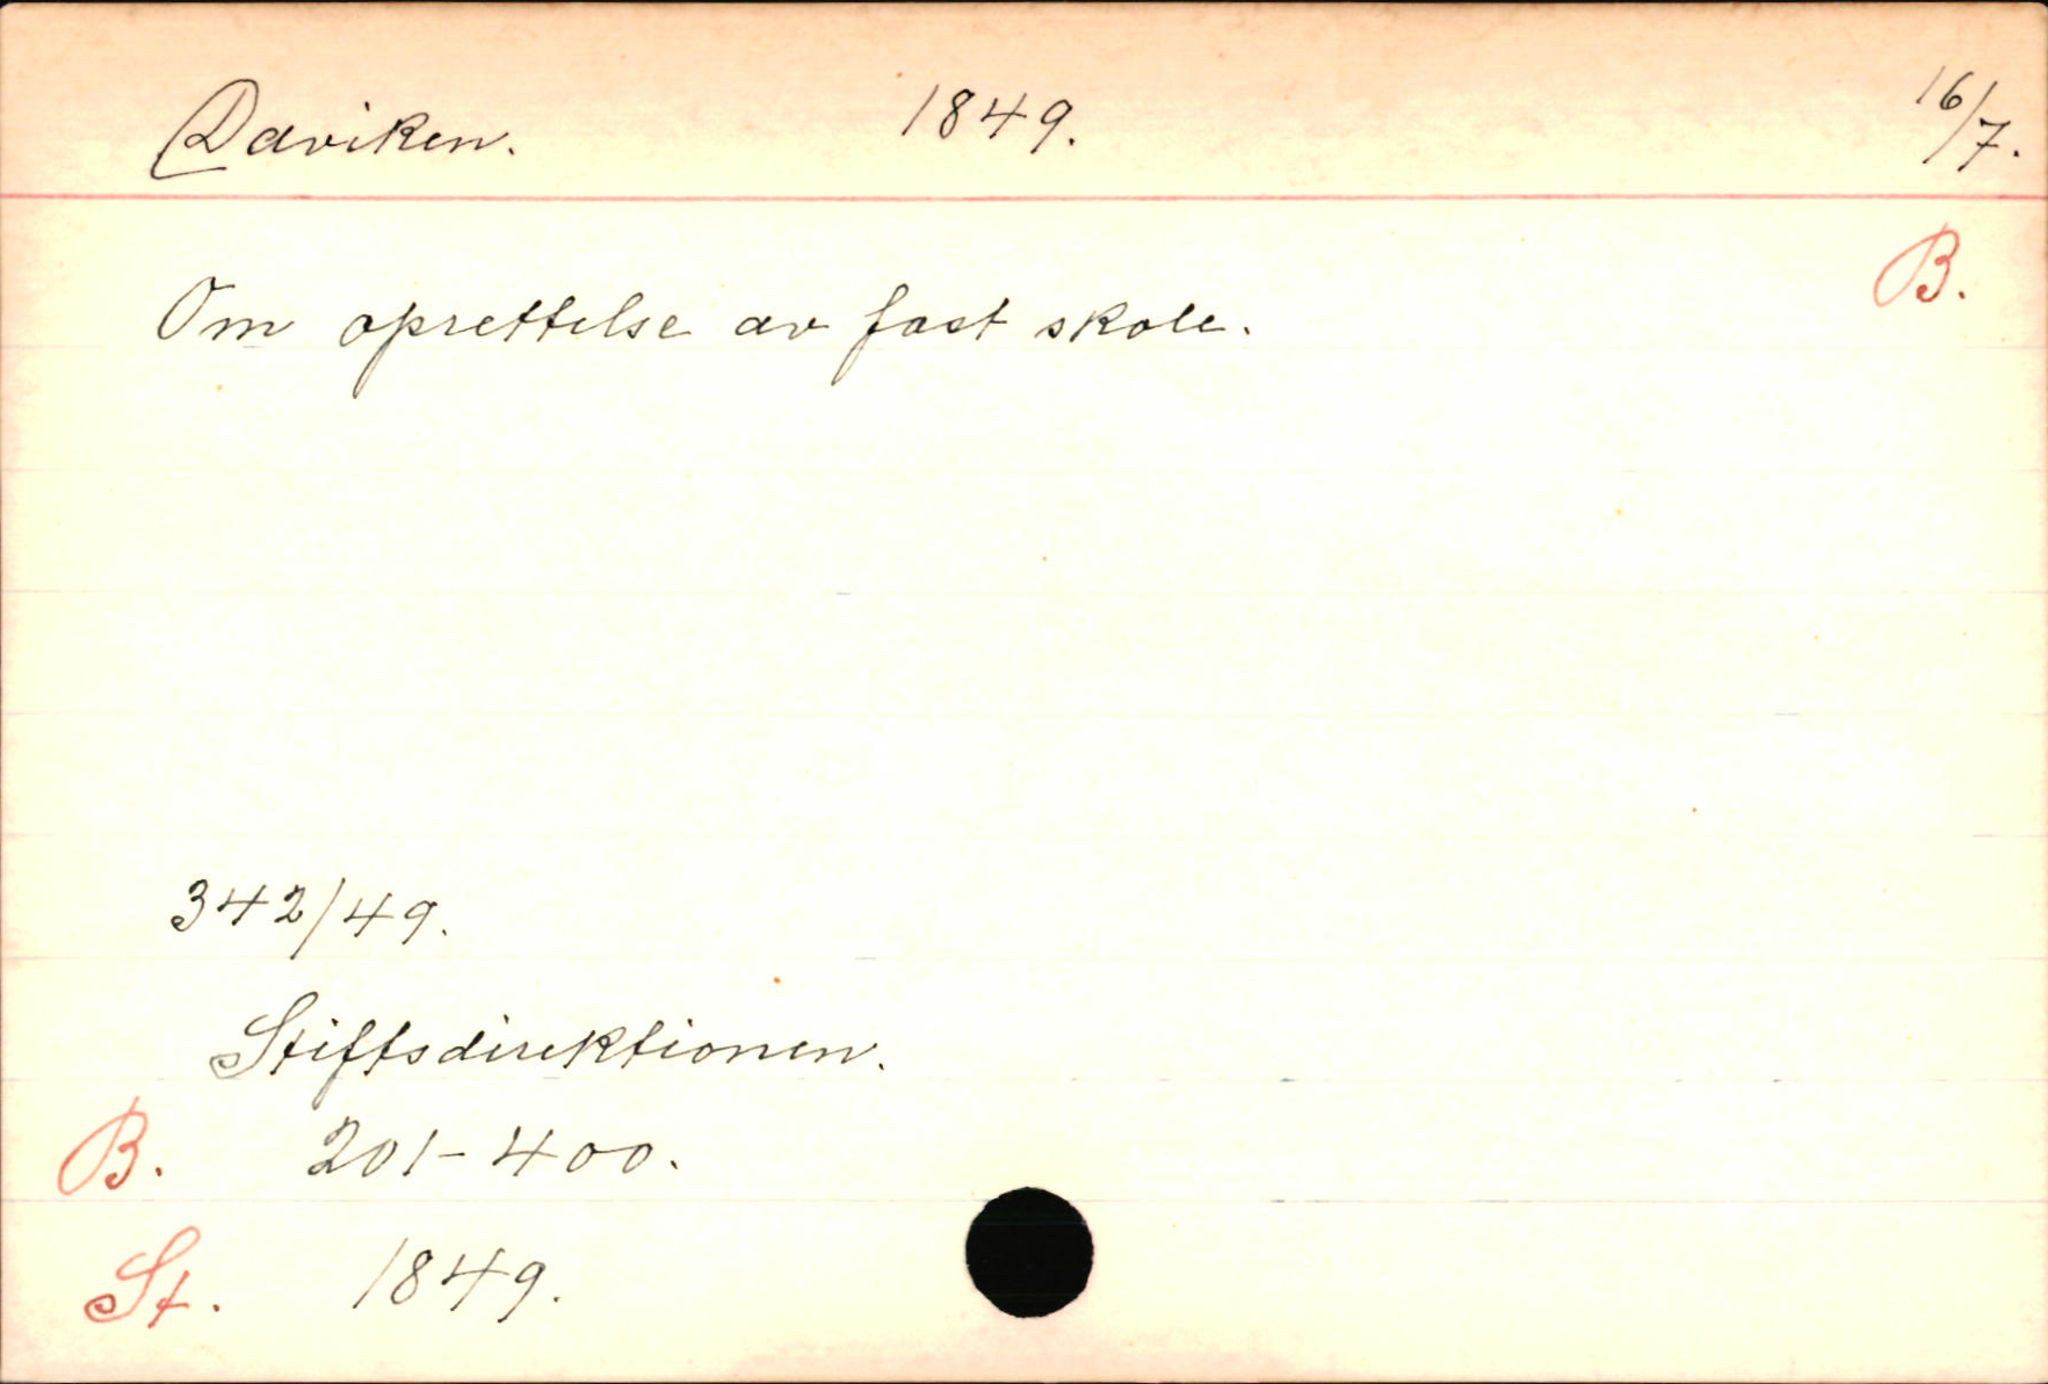 Daviken. 1849. 16/7.
B.
Om oprettelse av fast skole.
342/49.
Stiftsdirektionen.
B. 201-400.
St. 1849.